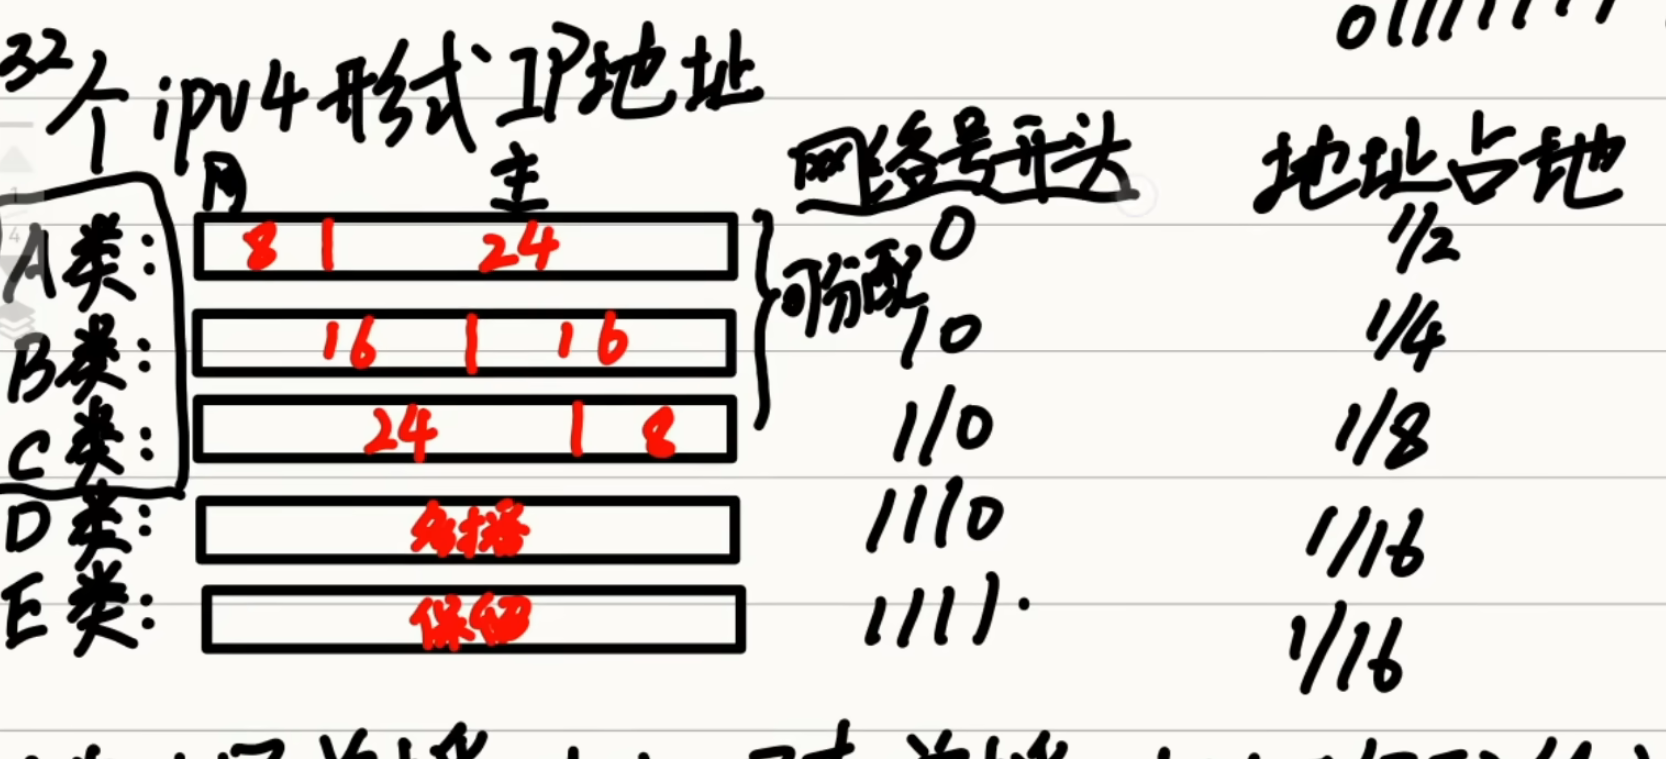 01111111
32个ipv4形式IP地址
网 主 网络号开头 地址占地
A类: 8 | 24 0 1/2
可分配
B类: 16 | 16 10 1/4
C类: 24 | 8 110 1/8
D类: 多播 1110 1/16
E类: 保留 1111. 1/16